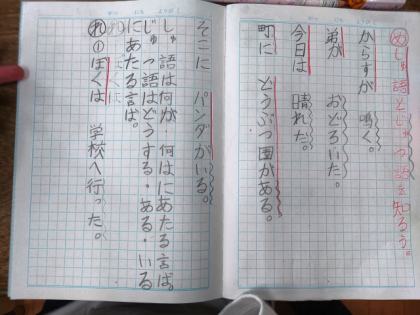 めしゅ語とじゅつ語を知ろう。
からすが　鳴く。
弟が　おどろいた。
今日は　晴れた。
町に　どうぶつ園がある。
そこに　パンダがいる。
しゅ語は何が・何はにあたる言ば。
じゅつ語はどうする・ある・いる
にあたる言ば。
れ①ぼくは　学校へ行った。